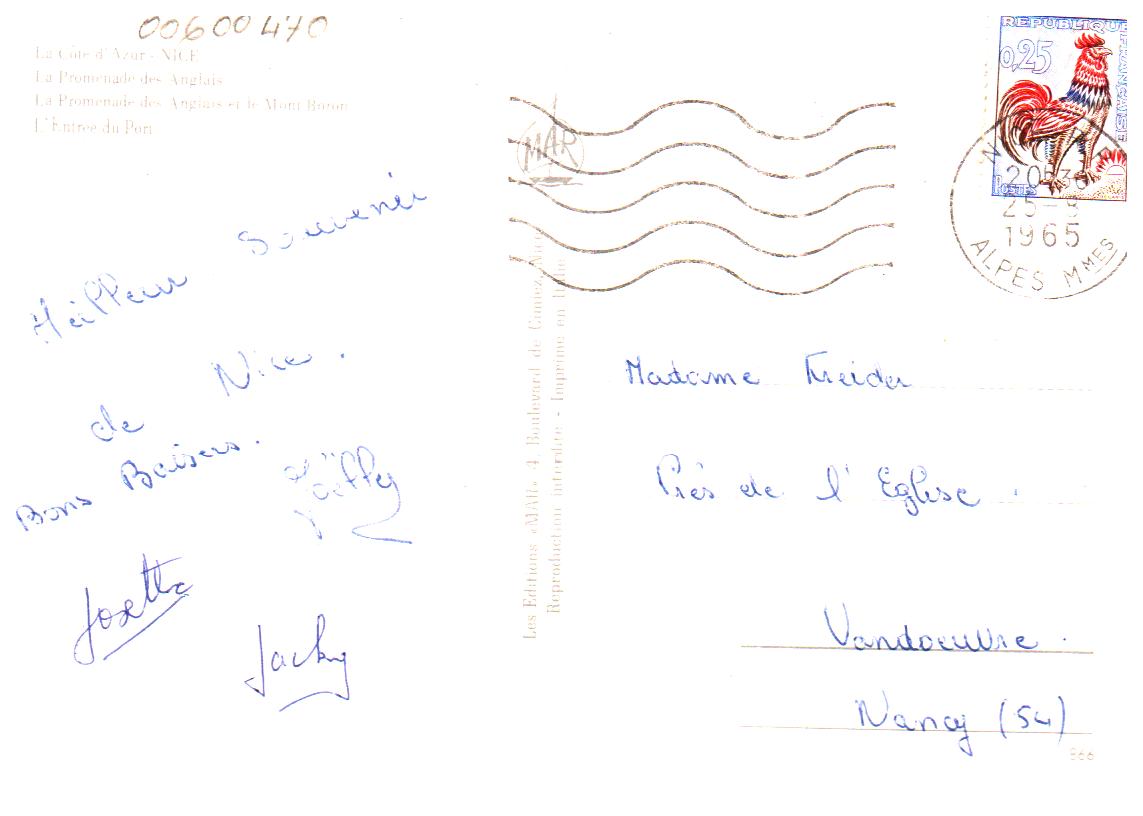 00600470
La Côte d'Azur - NICE
La Promenade des Anglais
La Promenade des Anglais et le Mont Boron
L'Entrée du Port
Meilleur Souvenir
de Nice.
Bons Baisers.
Joëlly
Josette
Jacky
MAR
Les Editions «MAR» 4, Boulevard de Cimiez, Nice
Reproduction interdite - Imprimé en Italie
REPUBLIQUE FRANÇAISE
0,25
POSTES
20H30
25-9
1965
ALPES MMES
Madame Kreider
Près de l'Eglise.
Vandoeuvre.
Nancy (54)
866